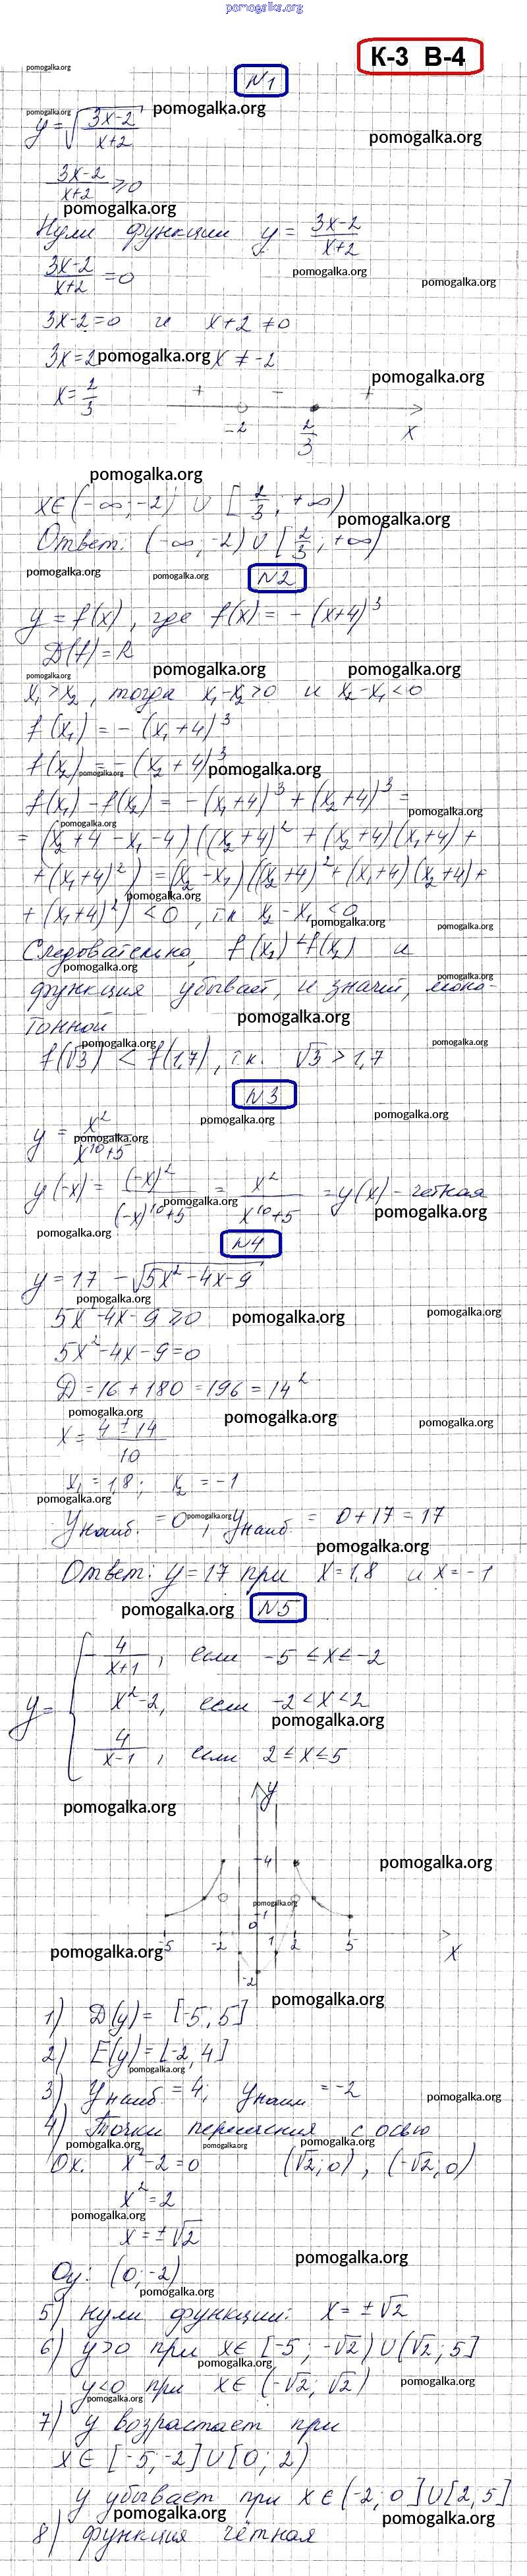 pomogalka.org
К-3 В-4
№1
y = √((3x-2)/(x+2))
(3x-2)/(x+2) ≥ 0
Нули функции y = (3x-2)/(x+2)
(3x-2)/(x+2) = 0
3x-2=0 и x+2 ≠ 0
3x=2 x ≠ -2
x = 2/3
+ - +
-2 2/3 x
x∈(-∞;-2) ∪ [2/3; +∞)
Ответ: (-∞;-2) ∪ [2/3; +∞)
№2
y = f(x), где f(x) = -(x+4)³
D(f) = R
x₁ > x₂, тогда x₁-x₂>0 и x₂-x₁<0
f(x₁) = -(x₁+4)³
f(x₂) = -(x₂+4)³
f(x₁) - f(x₂) = -(x₁+4)³ + (x₂+4)³ =
= (x₂+4-x₁-4)((x₂+4)² + (x₂+4)(x₁+4) +
+(x₁+4)²) = (x₂-x₁)((x₂+4)² + (x₁+4)(x₂+4) +
+(x₁+4)²) < 0, т.к. x₂-x₁<0
Следовательно, f(x₁)<f(x₂) и
функция убывает, и значит, моно-
тонной
f(√3) < f(1,7), т.к. √3 > 1,7
№3
y = x²/(x¹⁰+5)
y(-x) = (-x)²/((-x)¹⁰+5) = x²/(x¹⁰+5) = y(x) - четная
№4
y = 17 - √(5x²-4x-9)
5x²-4x-9 ≥ 0
5x²-4x-9=0
D = 16+180 = 196 = 14²
x = (4±14)/10
x₁ = 1,8; x₂ = -1
yнаиб. = 0, yнаиб. = 0+17 = 17
Ответ: y=17 при x=1,8 и x=-1
№5
y = { -4/(x+1), если -5 ≤ x ≤ -2
x²-2, если -2<x<2
4/(x-1), если 2 ≤ x ≤ 5
y
4
1
0
-5 -2 1 2 5 x
-2
1) D(y) = [-5, 5]
2) E(y) = [-2, 4]
3) yнаиб = 4; yнаим = -2
4) Точки пересечения с осью
Ox: x²-2=0 (√2; 0), (-√2; 0)
x² = 2
x = ±√2
Oy: (0; -2)
5) нули функции: x = ±√2
6) y>0 при x∈[-5; -√2) ∪ (√2; 5]
y<0 при x∈(-√2; √2)
7) y возрастает при
x∈[-5,-2] ∪ [0; 2)
y убывает при x∈(-2; 0] ∪ [2, 5]
8) функция чётная